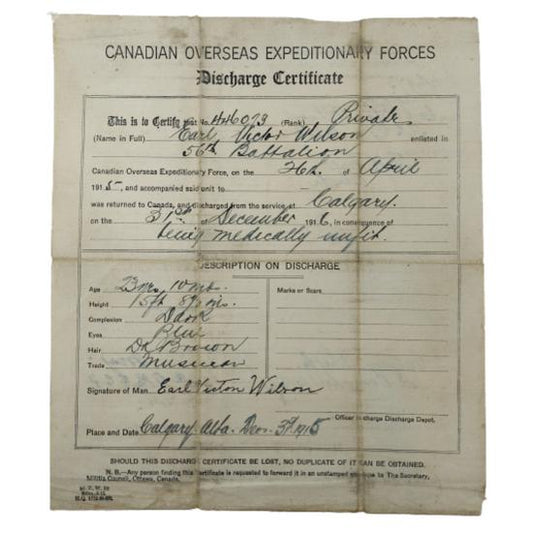 CANADIAN OVERSEAS EXPEDITIONARY FORCES
Discharge Certificate
This is to Certify that No. 446073 (Rank) Private
(Name in Full) Earl Victor Wilson enlisted in
56th Battalion
Canadian Overseas Expeditionary Force, on the 26th. of April
1915, and accompanied said unit to
was returned to Canada, and discharged from the service at Calgary.
on the 31st of December 1916, in consequence of
being medically unfit.
DESCRIPTION ON DISCHARGE
Age 10 mt.
Marks or Scars.
Height
Complexion Dark
Eyes Blue
Hair Dk Brown
Trade Musician
Signature of Man. Earl Victor Wilson
Officer in charge Discharge Depot.
Place and Date Calgary Alta. 1915
SHOULD THIS DISCHARGE CERTIFICATE BE LOST, NO DUPLICATE OF IT CAN BE OBTAINED.
N. B.—Any person finding this Certificate is requested to forward it in an unstamped envelope to The Secretary,
Militia Council, Ottawa, Canada.